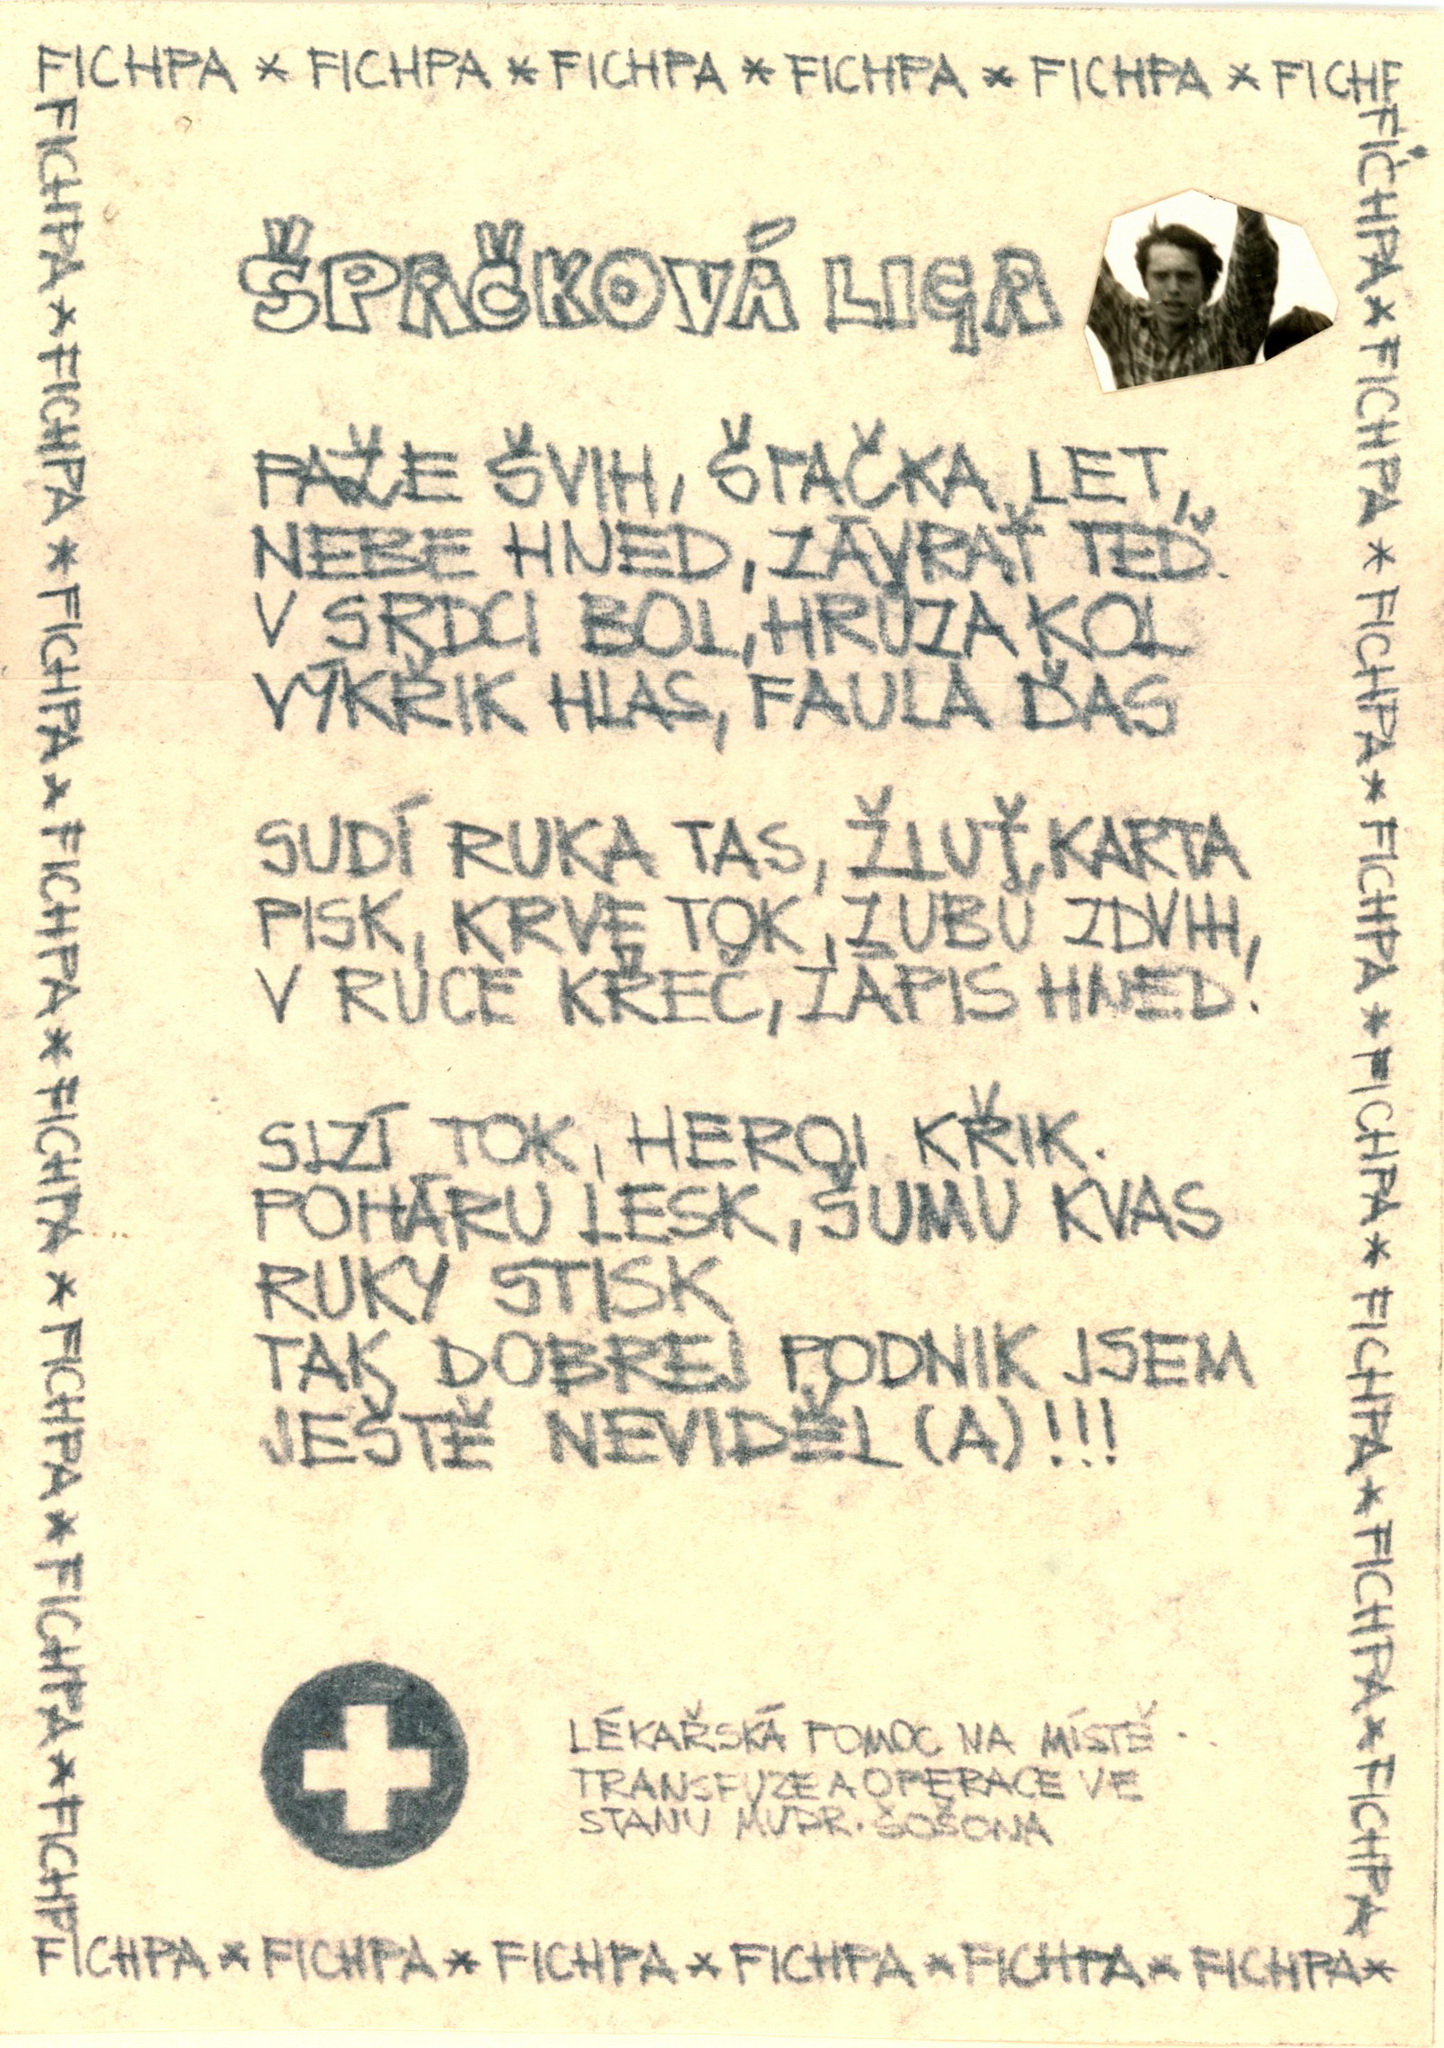 FICHPA * FICHPA * FICHPA * FICHPA * FICHPA * FICHP
FICHPA * FICHPA * FICHPA * FICHPA * FICHPA * FICHPA * FICHPA * FICHP
FICHPA * FICHPA * FICHPA * FICHPA * FICHPA * FICHPA * FICHPA * FICHPA
ŠPAČKOVÁ LIGA
PAŽE ŠVIH, ŠPAČKA LET,
NEBE HNED, ZÁVRAŤ TEĎ.
V SRDCI BOL, HRŮZA KOL
VÝKŘIK HLAS, FAULA ĎAS
SUDÍ RUKA TAS, ŽLUŤ KARTA
PISK, KRVE TOK, ZUBŮ ZDVIH,
V RUCE KŘEČ, ZÁPIS HNED!
SLZÍ TOK, HEROI KŘIK.
POHÁRU LESK, ŠUMU KVAS
RUKY STISK
TAK DOBREJ PODNIK JSEM
JEŠTĚ NEVIDĚL(A)!!!
LÉKAŘSKÁ POMOC NA MÍSTĚ.
TRANSFUZE A OPERACE VE
STANU MUDR. ŠOŠONA
FICHPA * FICHPA * FICHPA * FICHPA * FICHPA * FICHPA *